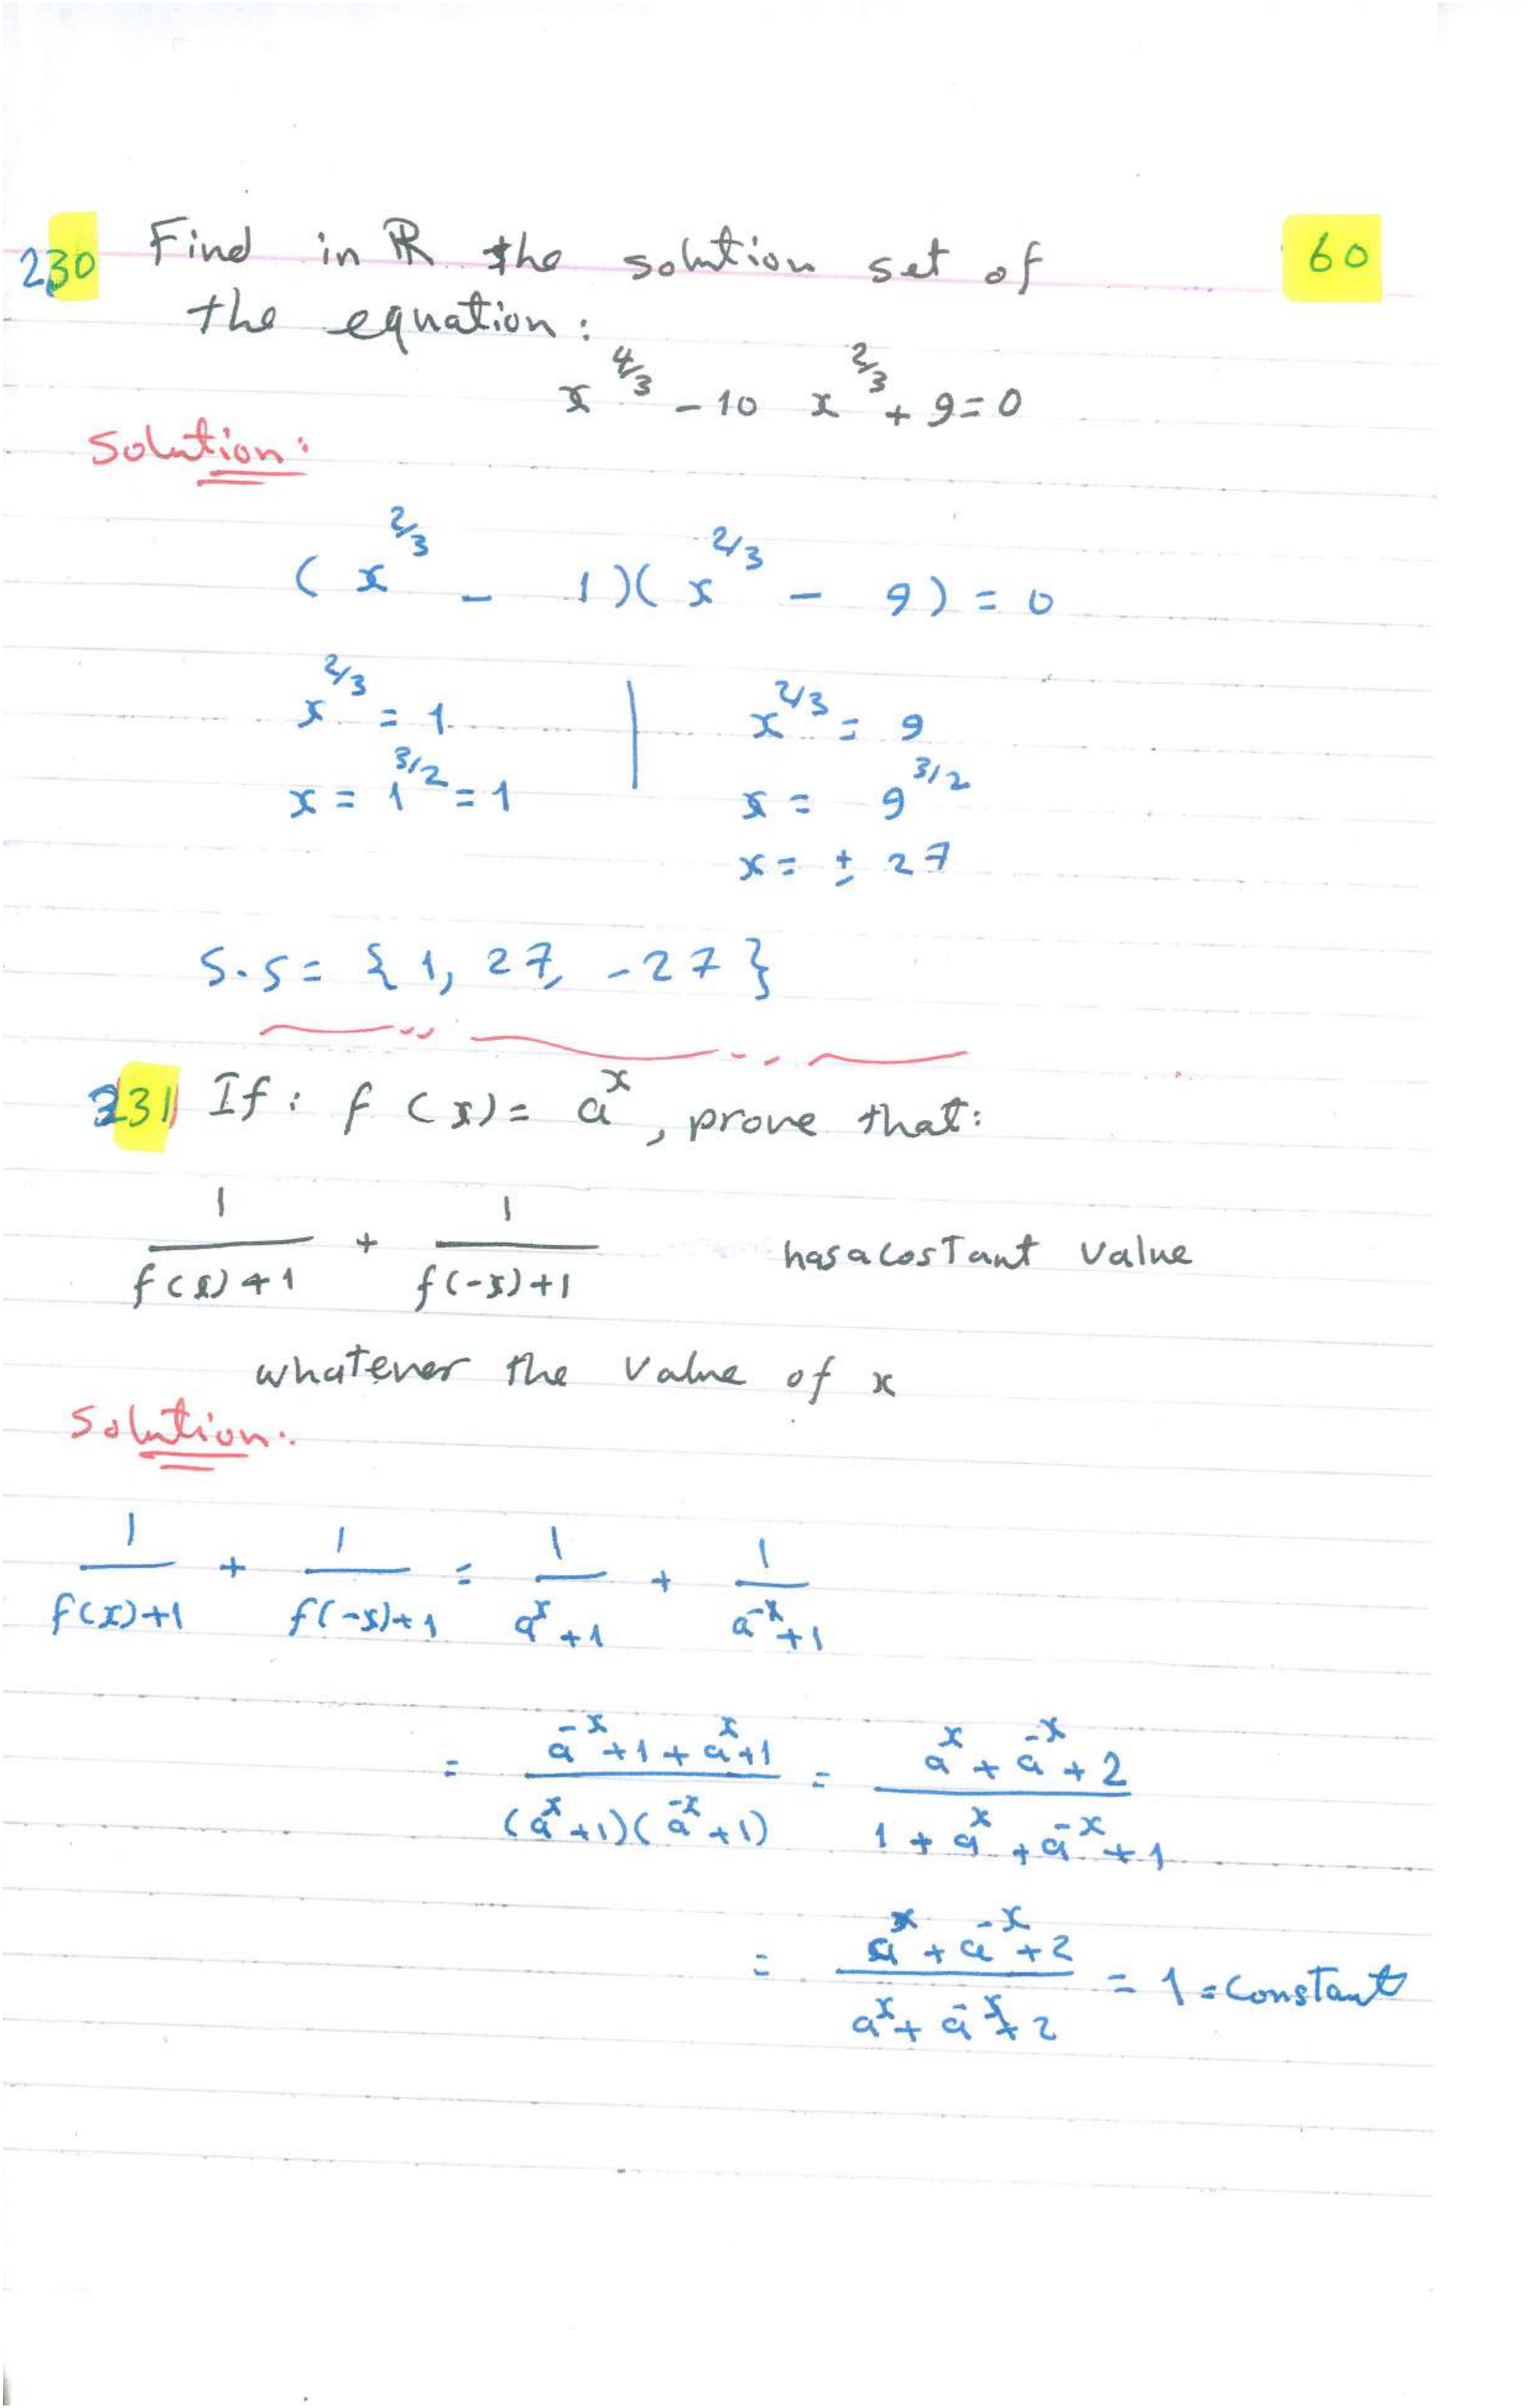 230 Find in ℝ the solution set of 60
the equation:
x^{4/3} - 10 x^{2/3} + 9 = 0
Solution:
(x^{2/3} - 1)(x^{2/3} - 9) = 0
x^{2/3} = 1 | x^{2/3} = 9
x = 1^{3/2} = 1 | x = 9^{3/2}
x = ± 27
S.S = {1, 27, -27}
231 If: f(x) = a^x, prove that:
1/(f(x)+1) + 1/(f(-x)+1) has a costant value
whatever the value of x
Solution:
1/(f(x)+1) + 1/(f(-x)+1) = 1/(a^x+1) + 1/(a^{-x}+1)
= (a^{-x}+1+a^x+1)/((a^x+1)(a^{-x}+1)) = (a^x+a^{-x}+2)/(1+a^x+a^{-x}+1)
= (a^x+a^{-x}+2)/(a^x+a^{-x}+2) = 1 = constant